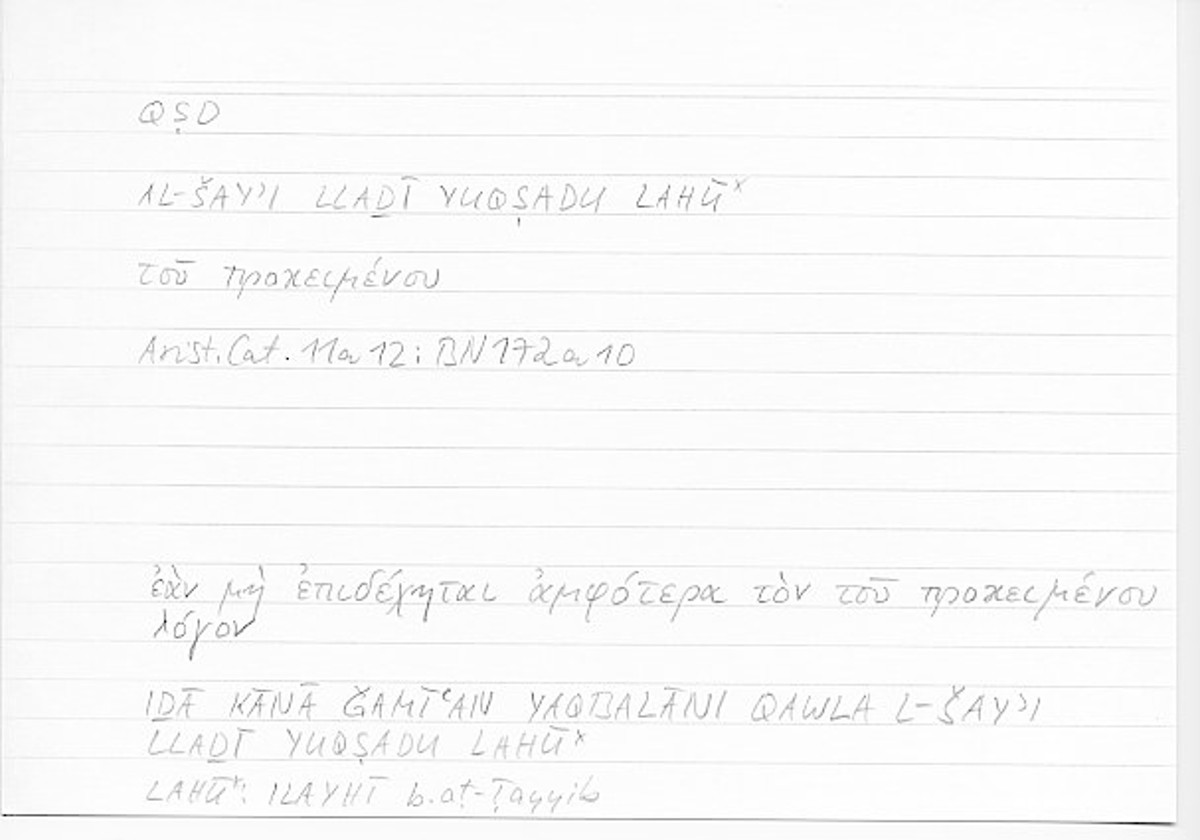 QṢD
AL-ŠAY'I LLAḎĪ YUQṢADU LAHŪˣ
τοῦ προκειμένου
Arist. Cat. 11a12; BN 172a10
ἐὰν μὴ ἐπιδέχηται ἀμφότερα τὸν τοῦ προκειμένου
λόγον
IḎĀ KĀNĀ ǦAMĪʿAN YAQBALĀNI QAWLA L-ŠAY'I
LLAḎĪ YUQṢADU LAHŪˣ
LAHŪˣ: ILAYHĪ b. aṭ-Ṭayyib